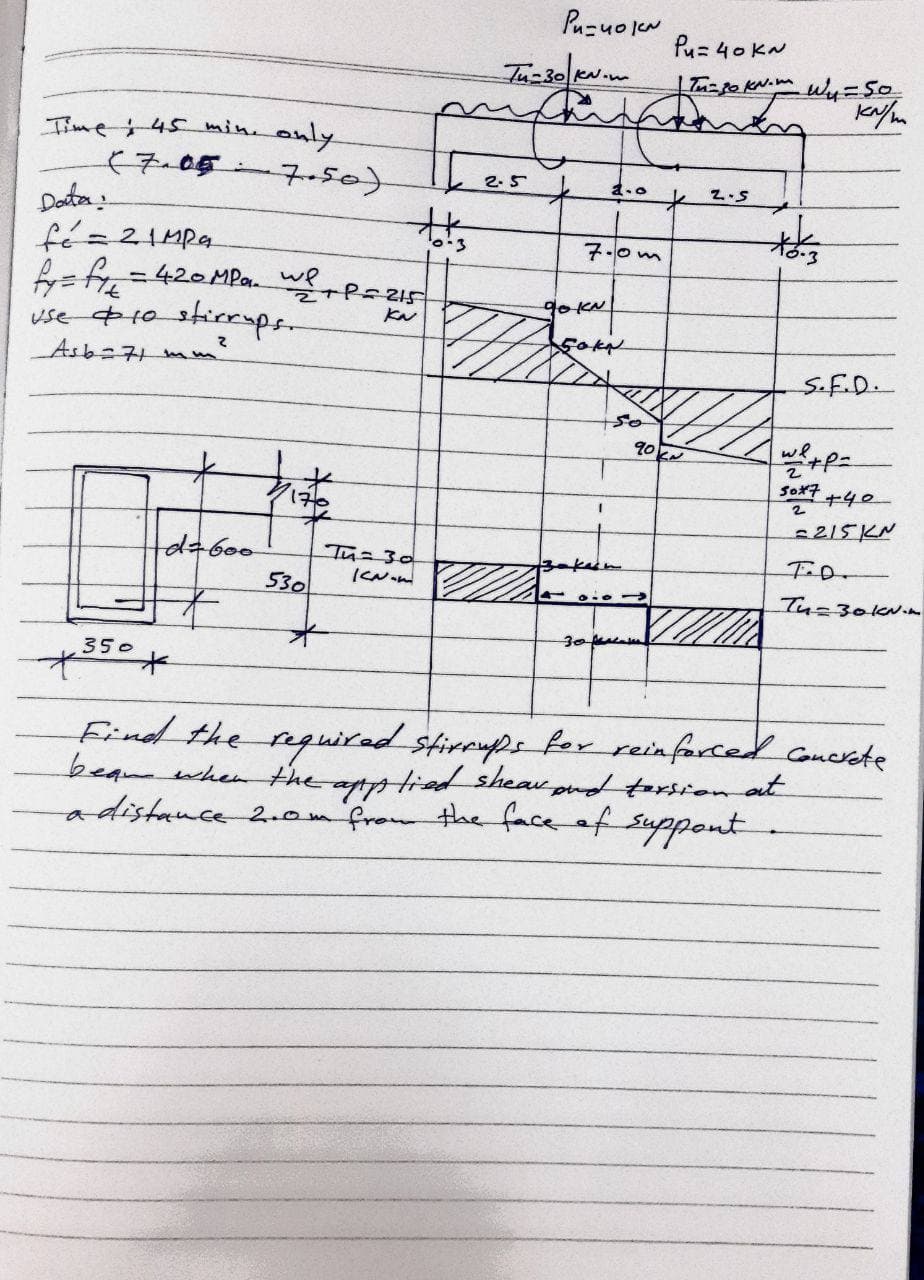 Pu=40 KN
Pu=40 KN
Tu=30 KN.m
Tu=30 KN.m
Wu=50
KN/m
Time : 45 min. only
(7.05 - 7.50)
2.5
2.0
2.5
Data:
fc' = 21 MPa
0.3
7.0 m
0.3
fy = fyt = 420 MPa.
wl/2 + P = 215
KN
use Φ 10 stirrups.
Asb = 71 mm²
90 KN
50 KN
S.F.D.
50
90 KN
wl/2 + P =
50*7/2 + 40
= 215 KN
170
d=600
530
350
Tu = 30
KN.m
30 KN.m
T.D.
0.0
Tu = 30 KN.m
30 KN.m
Find the required stirrups for reinforced concrete
beam when the applied shear and torsion at
a distance 2.0 m from the face of support .